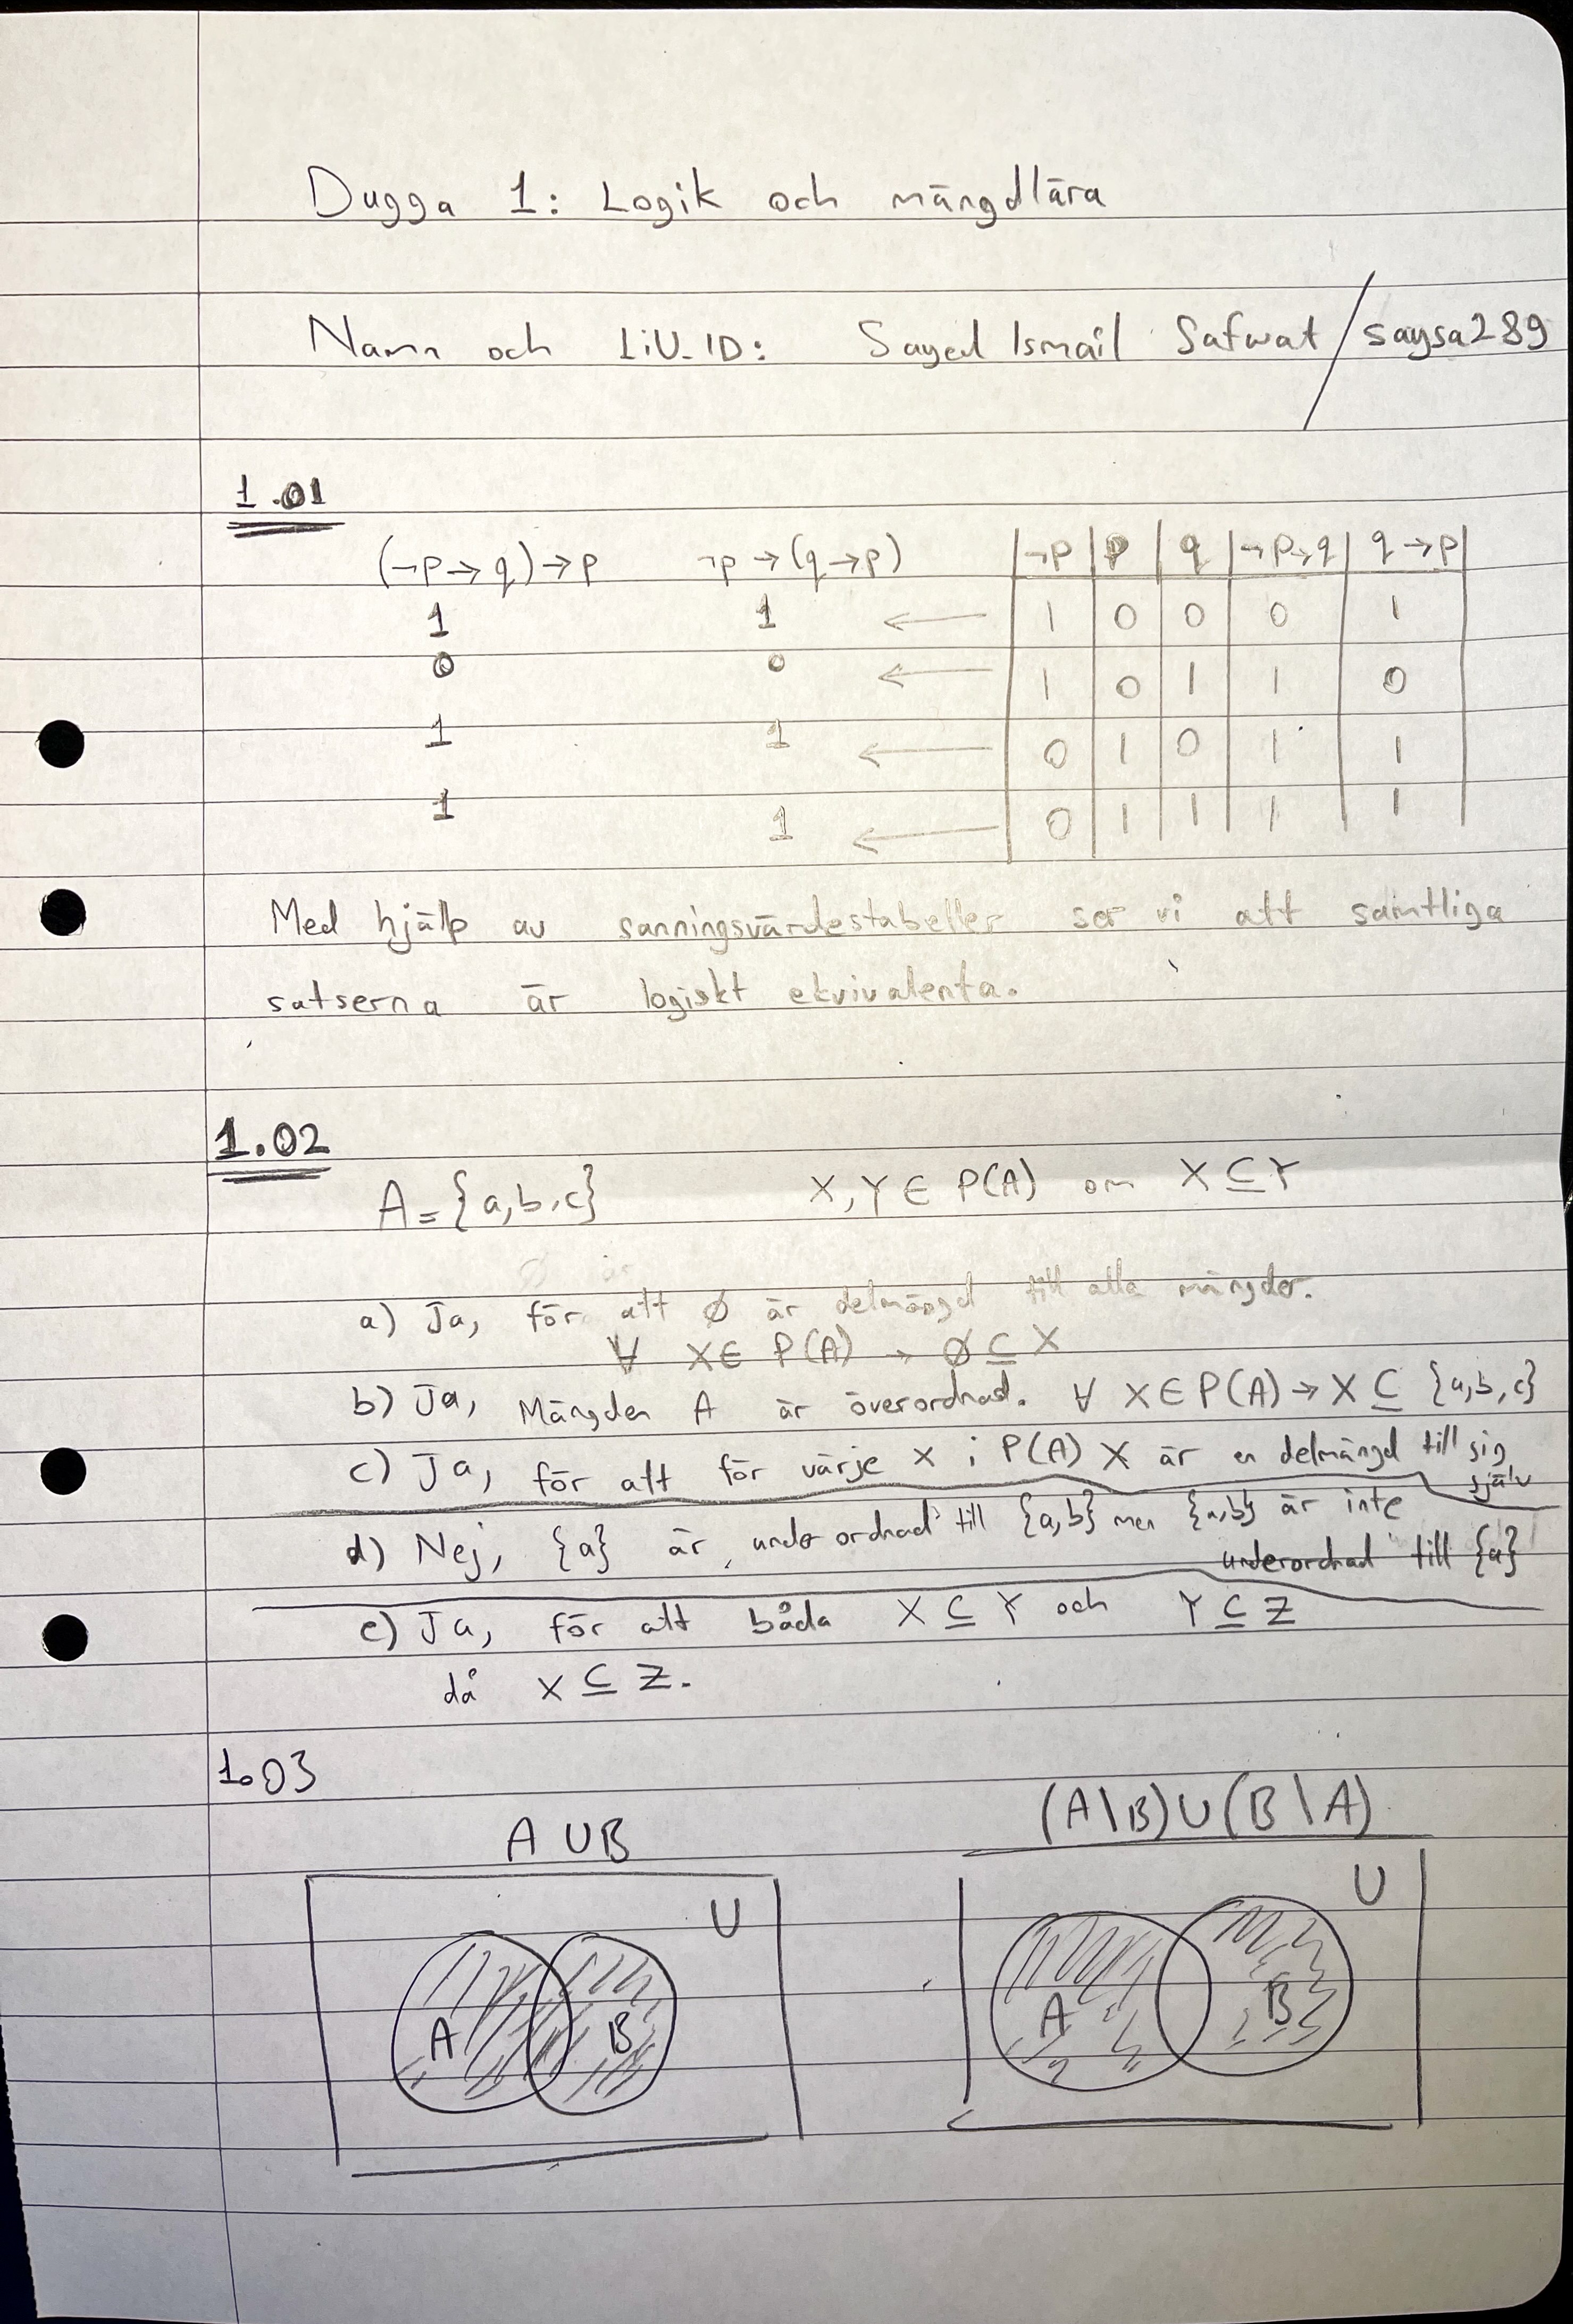 Dugga 1: Logik och mängdlära
Namn och LiU-ID: Sayed Ismail Safwat / saysa289
1.01
(¬p→q)→p ¬p→(q→p) ¬p p q ¬p→q q→p
1 1 ← 1 0 0 0 1
0 0 ← 1 0 1 1 0
1 1 ← 0 1 0 1 1
1 1 ← 0 1 1 1 1
Med hjälp av sanningsvärdestabeller ser vi att samtliga
satserna är logiskt ekvivalenta.
1.02
A={a,b,c} X,Y∈P(A) om X⊆Y
a) Ja, för att ∅ är delmängd till alla mängder.
∀ X∈ P(A) → ∅⊆X
b) Ja, Mängden A är överordnad. ∀ X∈P(A)→X⊆ {a,b,c}
c) Ja, för att för värje X i P(A) X är en delmängd till sig
själv
d) Nej, {a} är underordnad till {a,b} men {a,b} är inte
underordnad till {a}
e) Ja, för att båda X⊆Y och Y⊆Z
då X⊆Z.
1.03
A∪B (A\B)∪(B\A)
U U
A B A B